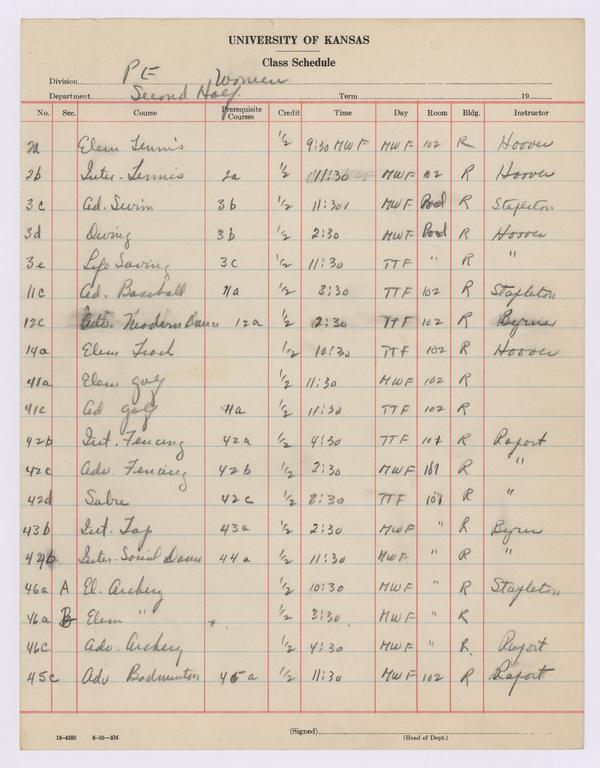 UNIVERSITY OF KANSAS
Class Schedule
Division PE Women
Department Second Half Term 19
No. Sec. Course Prerequisite Courses Credit Time Day Room Bldg. Instructor
2a Elem Tennis 1/2 9:30 MWF MWF 102 R Hoover
2b Inter. Tennis 2a 1/2 11:30 MWF 102 R Hoover
3c Ad. Swim 3b 1/2 11:30 MWF Pool R Stapleton
3d Diving 3b 1/2 2:30 MWF Pool R Hoover
3e Life Saving 3c 1/2 11:30 TTF " R "
11c Ad. Baseball 11a 1/2 3:30 TTF 102 R Stapleton
12c Adv. Modern Dance 12a 1/2 2:30 TTF 102 R Byrne
14a Elem Track 1/2 10:30 TTF 102 R Hoover
41a Elem golf 1/2 11:30 MWF 102 R
41c Ad golf 41a 1/2 11:30 TTF 102 R
42b Int. Fencing 42a 1/2 4:30 TTF 101 R Raport
42c Adv. Fencing 42b 1/2 3:30 MWF 101 R "
42d Sabre 42c 1/2 2:30 TTF 101 R "
43b Int. Tap 43a 1/2 2:30 MWF " R Byrne
44b Inter-Social Dance 44a 1/2 11:30 MWF " R "
46a A El. Archery 1/2 10:30 MWF " R Stapleton
46a B Elem " 1/2 3:30 MWF " R
46c Adv. Archery 1/2 4:30 MWF " R. Raport
45c Adv Badminton 45a 1/2 11:30 MWF 102 R Raport
(Signed)
16-4580 8-36—5M (Head of Dept.)